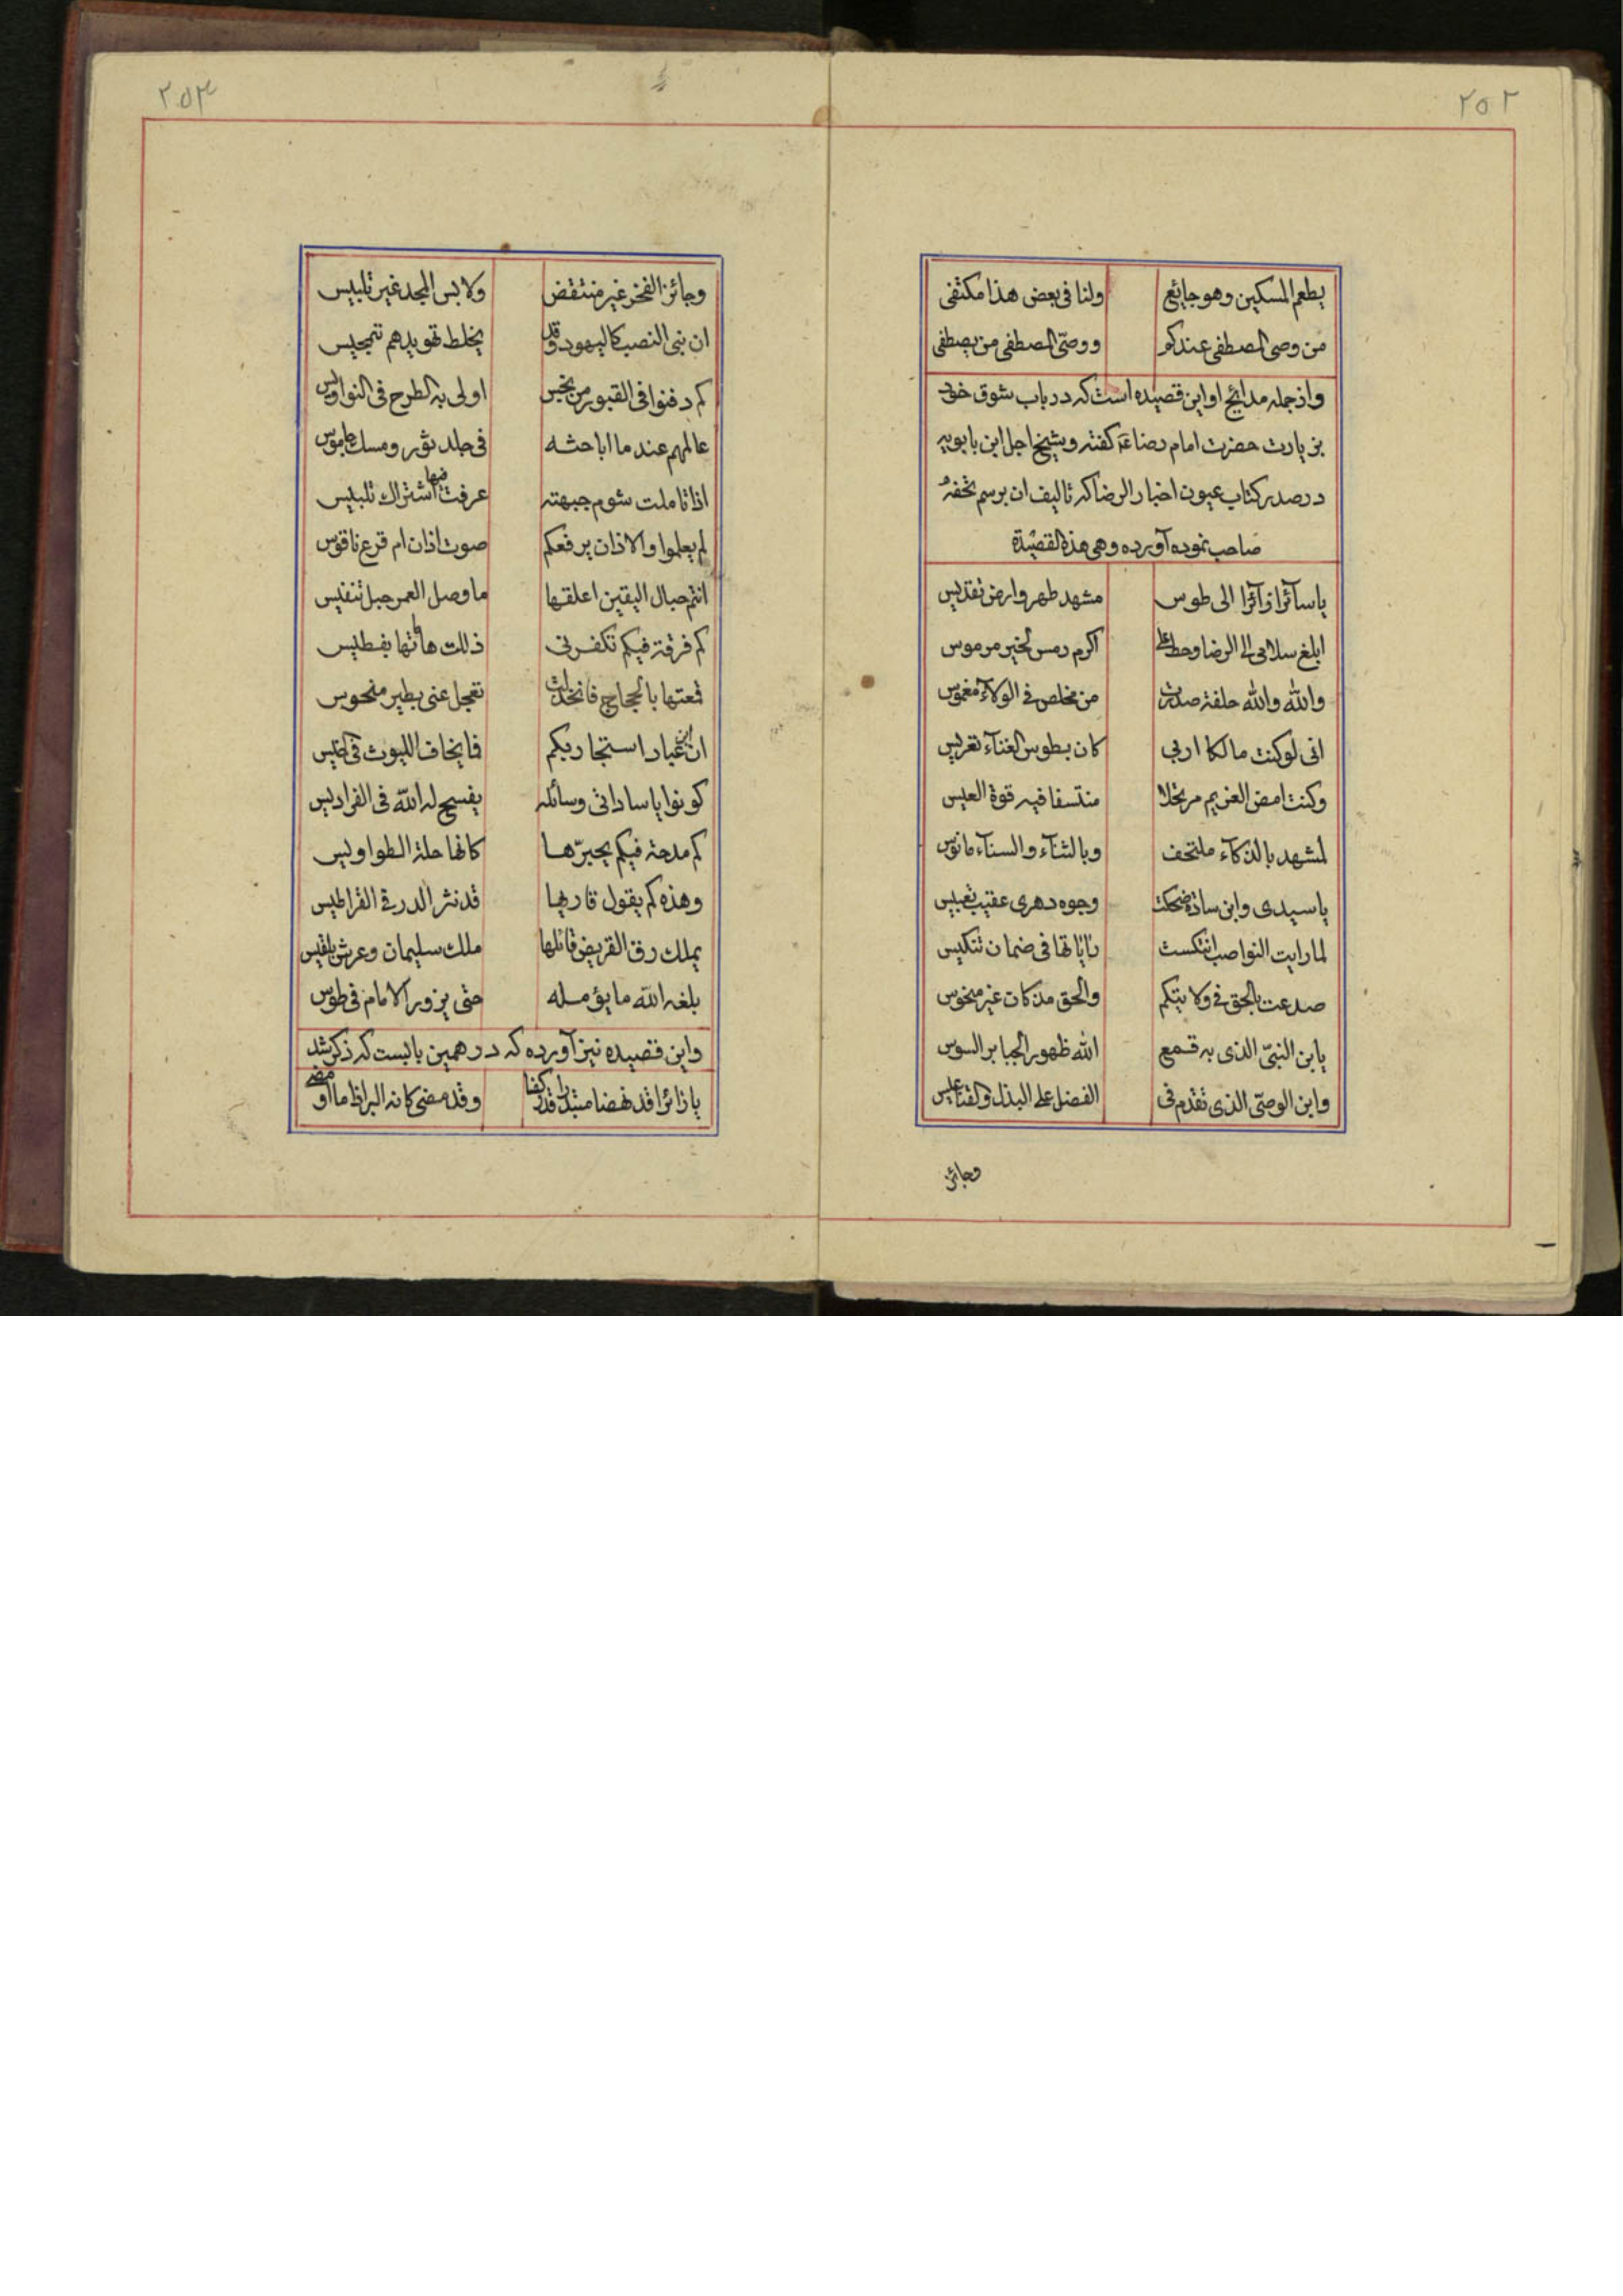 ٢٥٢
يطعم المسكين وهو جايع ولنا فى بعض هذا مكتفى
من وصى المصطفى عندكم ووصّى المصطفى من يصطفى
واز جمله مدائح او اين قصيده است كه در باب شوق خود
بزيارت حضرت امام رضا گفته وشيخ اجل ابن بابويه
در صدر كتاب عيون اخبار الرضا كه تاليف ان برسم تحفهٔ
صاحب نموده آورده وهى هذه القصيدة
ياسآئرا زآئرا الى طوس مشهد طهر وارض تقديس
ابلغ سلامى الى الرضا وحط على اكرم رمس لخير مرموس
والله والله حلفة صدرت من مخلص فى الولاء مغموس
انى لو كنت مالكا اربى كان بطوس الغناء تعريس
وكنت امضى العزيم مرتحلا منتسفا فيه قوة العيس
لمشهد بالذكآء ملتحف وبالثنآء والسنآء مانوس
ياسيدى وابن سادة ضحكت وجوه دهرى عقيب تعبيس
لما رايت النواصب انتكست راياتها فى ضمان تنكيس
صدعت بالحق فى ولايتكم والحق مذ كان غير منحوس
يابن النبىّ الذى به قمع الله ظهور الجبابر السوس
وابن الوصىّ الذى تقدم فى الفضل على البذل القناعيس
وجائز
٢٥٣
وجائز الفخر غير منتقض ولابس المجد غير تلبيس
ان بنى النصب كاليهود وقد يخلط تهويدهم تمجيس
كم دفنوا فى القبور من نجس اولى به الطرح فى النواويس
عالمهم عند ما اباحثه فى جلد ثور ومسك جاموس
اذا تاملت شوم جبهته عرفت فيها اشتراك تلبيس
لم يعلموا والاذان يرفعكم صوت اذان ام قرع ناقوس
انتم حبال اليقين اعلقها ما وصل العمر حبل تنفيس
كم فرقة فيكم تكفرنى ذللت هاماتها بفطيس
قمعتها بالحجاج فانخذلت تعجل عنى بطير منحوس
ان ابن عباد استجار بكم فما يخاف الليوث فى الخيس
كونوا ياساداتى وسائله يفسح له الله فى الفراديس
كم مدحة فيكم يحبرّها كانها حلة الطواويس
وهذه كم يقول قاريها قد نثر الدر فى القراطيس
يملك رق القريض قائلها ملك سليمان وعرش بلقيس
بلغه الله ما يؤمله حتى يزور الامام فى طوس
واين قصيده نيز آورده كه در همين بابست كه ذكر شد
يا زائرا قد نهضا مبتدرا قد ركضا وقد مضى كانه البرق اذا ما اومض